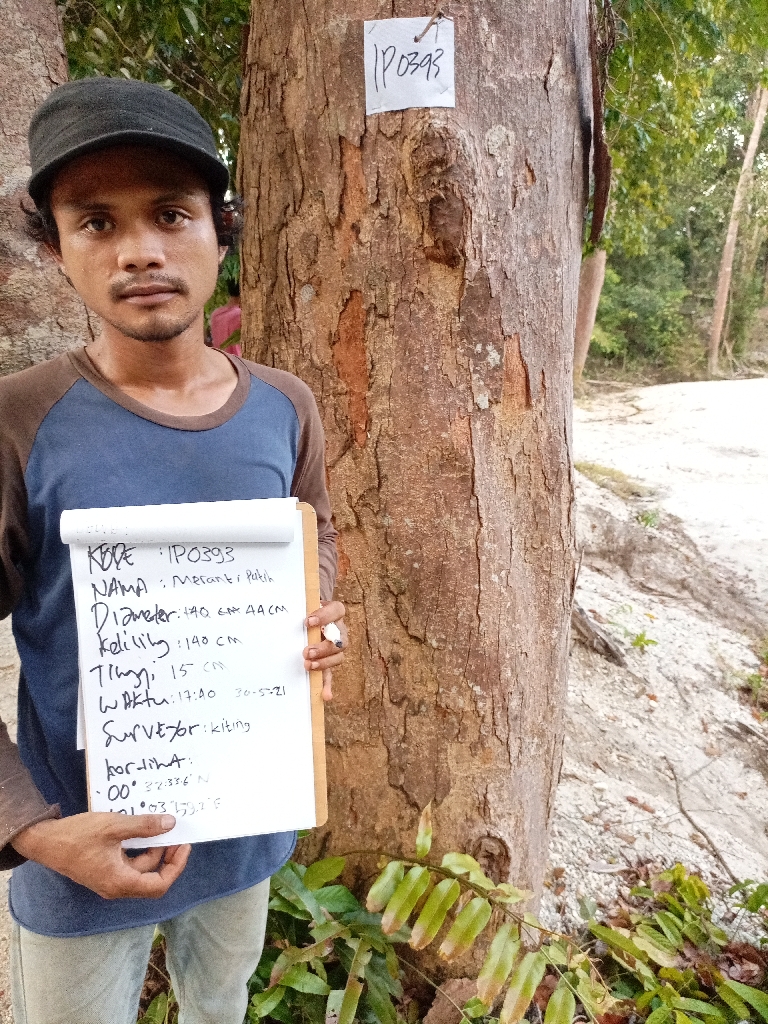 IP0393
KODE : IP0393
NAMA : Meranti Patih
Diameter : 44 cm
Keliling : 140 cm
Tinggi, 15 cm
WAKtu : 17:40 30-5-21
Surveyor : kiting
kordinat :
00° 32'33.6" N
03'59.2"E